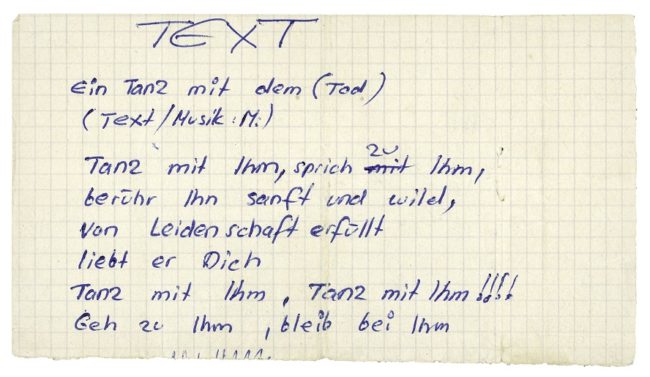 TEXT
Ein Tanz mit dem (Tod)
(Text/Musik: M.)
Tanz mit Ihm, sprich zu Ihm,
berühr Ihn sanft und wild,
von Leidenschaft erfüllt
liebt er Dich
Tanz mit Ihm, Tanz mit Ihm!!!!
Geh zu Ihm, bleib bei Ihm